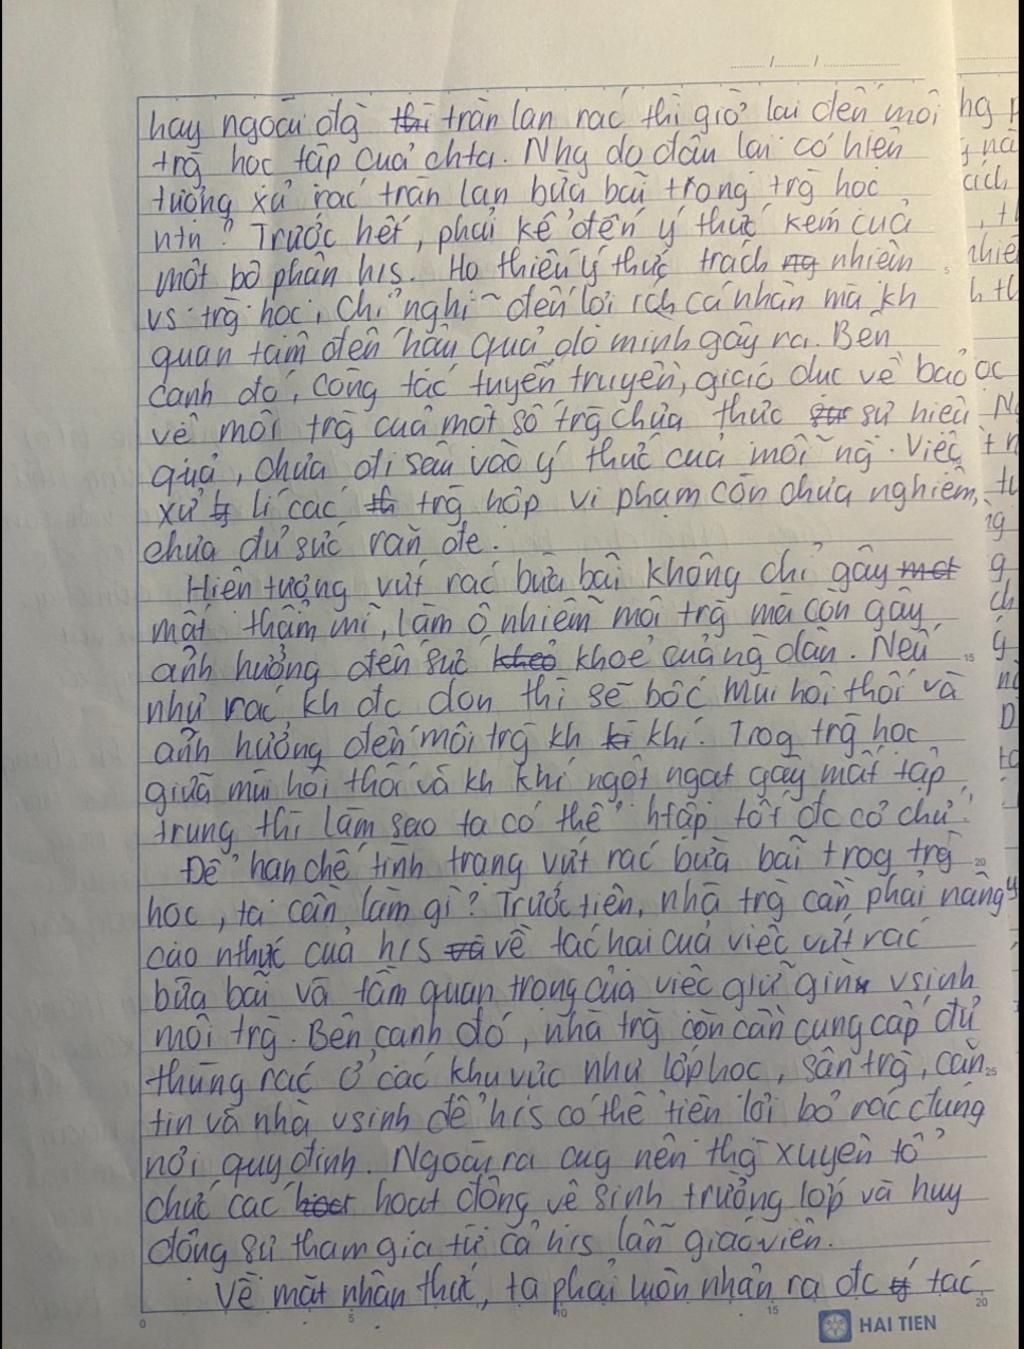 hay ngoài đg thì tràn lan rác thì giờ lại đến môi
trg học tập của chta. Nhg do đâu lại có hiện
tượng xả rác tràn lan bừa bãi trong trg học
ntn? Trước hết, phải kể đến ý thức kém của
một bộ phận h/s. Họ thiếu ý thức trách ng nhiệm
vs trg học, chỉ nghĩ đến lợi ích cá nhân mà kh
quan tâm đến hậu quả do mình gây ra. Bên
cạnh đó, công tác tuyên truyền, giáo dục về bảo
vệ môi trg của một số trg chưa thực sự hiệu
quả, chưa đi sâu vào ý thức của mỗi ng. Việc
xử lí các th trg hợp vi phạm còn chưa nghiêm,
chưa đủ sức răn đe.
Hiện tượng vứt rác bừa bãi không chỉ gây mất
mất thẩm mĩ, làm ô nhiễm môi trg mà còn gây
ảnh hưởng đến sức khoẻ của ng dân. Nếu
như rác kh đc dọn thì sẽ bốc mùi hôi thối và
ảnh hưởng đến môi trg kh khí. Trog trg học
giữa mùi hôi thối và kh khí ngột ngạt gây mất tập
trung thì làm sao ta có thể htập tốt đc cơ chứ.
Để hạn chế tình trạng vứt rác bừa bãi trog trg
học, ta cần làm gì? Trước tiên, nhà trg cần phải nâng
cao nthức của h/s và về tác hại của việc vứt rác
bừa bãi và tầm quan trọng của việc giữ gìn vsinh
môi trg. Bên cạnh đó, nhà trg còn cần cung cấp đủ
thùng rác ở các khu vực như lớp học, sân trg, căn
tin và nhà vsinh để h/s có thể tiện lợi bỏ rác đúng
nơi quy định. Ngoài ra cug nên thg xuyên tổ
chức các hoạt động vệ sinh trường lớp và huy
động sự tham gia từ cả h/s lẫn giáo viên.
Về mặt nhận thức, ta phải luôn nhận ra đc tác
HAI TIEN